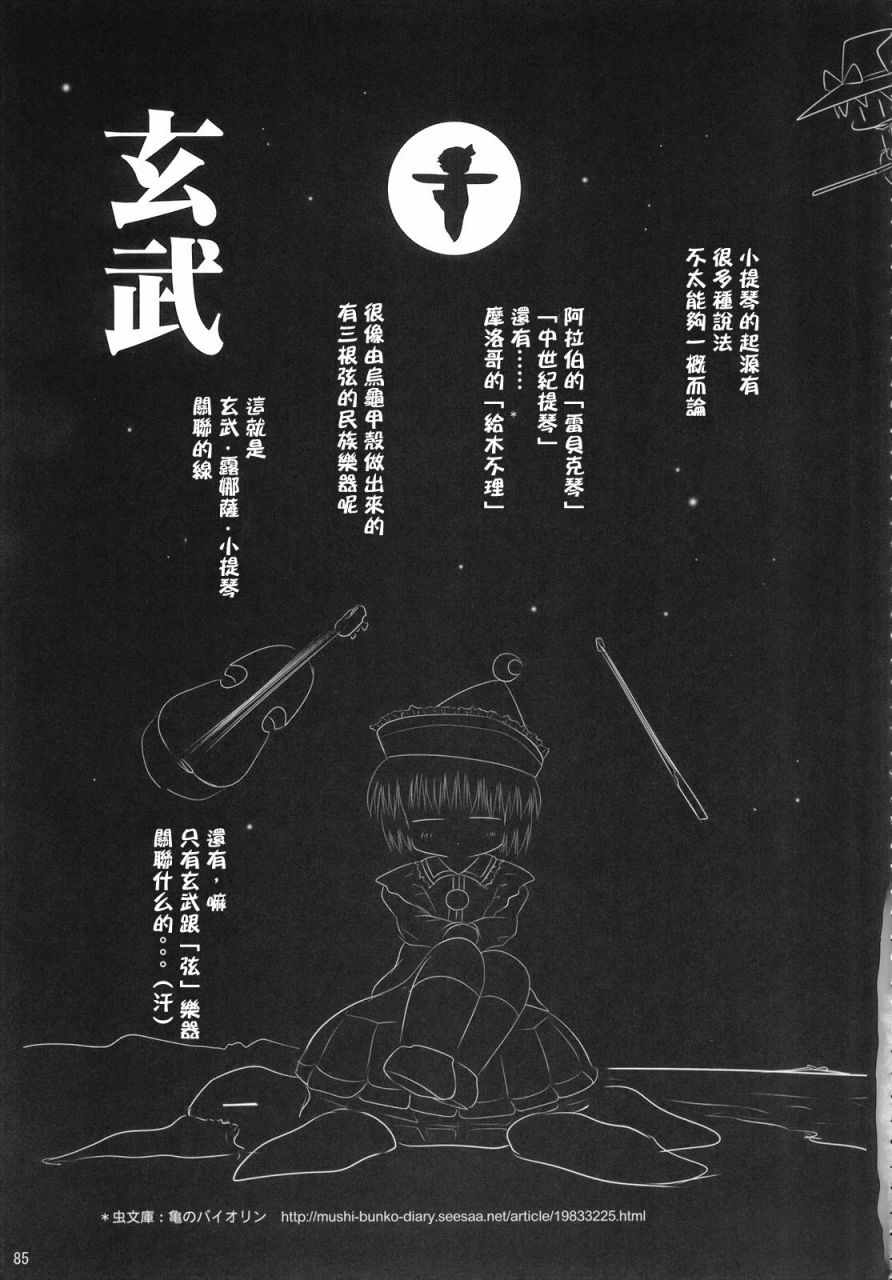 玄武
小提琴的起源有
很多種說法
不太能夠一概而論
阿拉伯的「雷貝克琴」
「中世紀提琴」
還有……
摩洛哥的「給木不理」
很像由烏龜甲殼做出來的
有三根弦的民族樂器呢
這就是
玄武・露娜薩・小提琴
關聯的線
還有，嘛
只有玄武跟「弦」樂器
關聯什么的。。。（汗）
＊虫文庫：亀のバイオリン　http://mushi-bunko-diary.seesaa.net/article/19833225.html
85